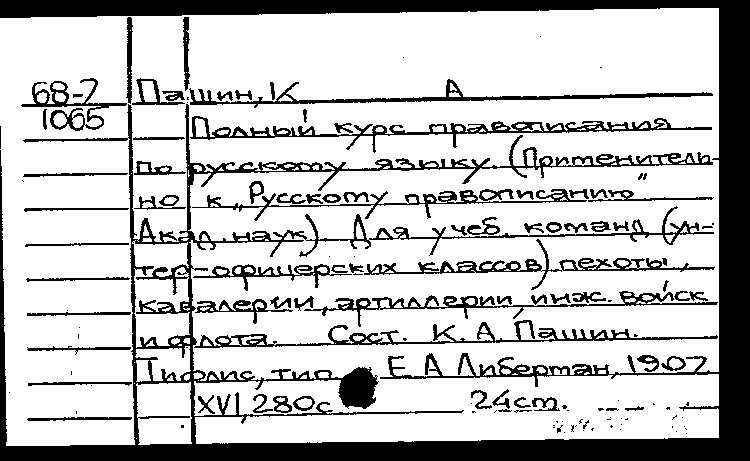 68-7 Пашин, К А
1065 Полный курс правописания
по русскому языку. (Применитель-
но к „Русскому правописанию"
Акад. наук). Для учеб. команд (ун-
тер-офицерских классов) пехоты,
кавалерии, артиллерии, инж. войск
и флота. Сост. К. А. Пашин.
Тифлис, тип. Е А Либерман, 1907
XVI, 280с 24см.